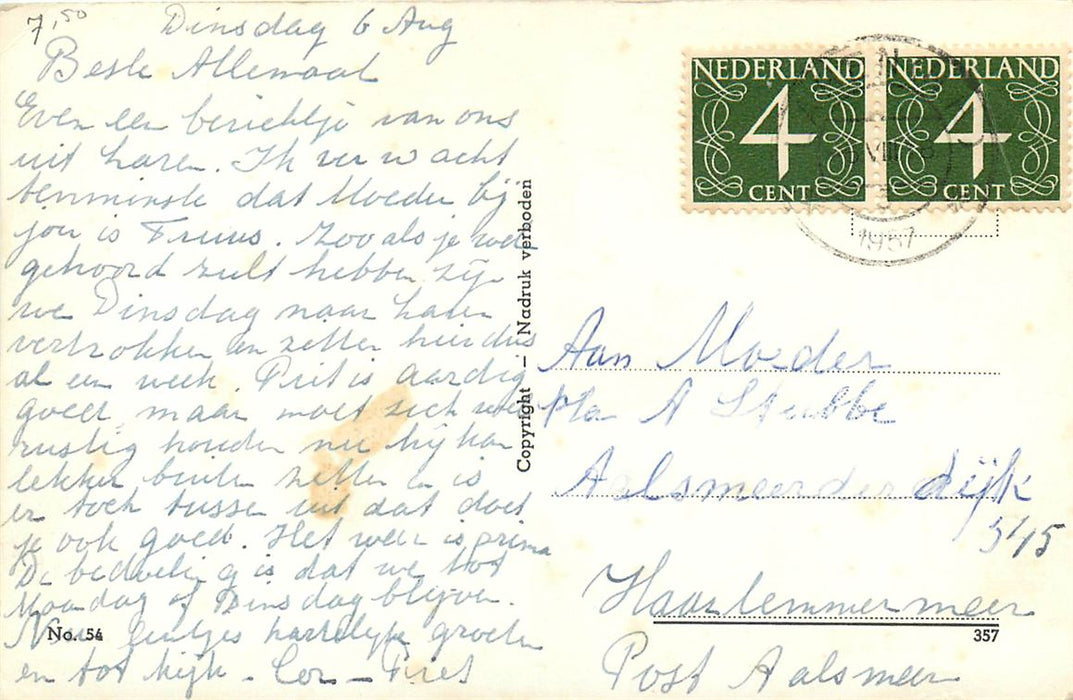 7,50
Dinsdag 6 Aug
Beste Allemaal
Even een berichtje van ons
uit haren. Ik verwacht
tenminste dat Moeder bij
jou is Truus. Zooals je wel
gehoord zult hebben zijn
we Dinsdag naar haren
vertrokken en zitten hier dus
al een week. Piet is aardig
goed, maar moet zich wel
rustig houden nu hij kan
lekker buiten zitten en is
er toch tussen uit dat doet
je ook goed. Het weer is prima
De bedoeling is dat we tot
Maandag of Dinsdag blijven.
Nou luitjes hartelijke groeten
en tot kijk. Cor - Piet
No. 54
Copyright – Nadruk verboden
NEDERLAND
4
CENT
NEDERLAND
4
CENT
1957
Aan Moeder
p/a A Stubbe
Aalsmeerderdijk
515
Haarlemmermeer
357
Post Aalsmeer